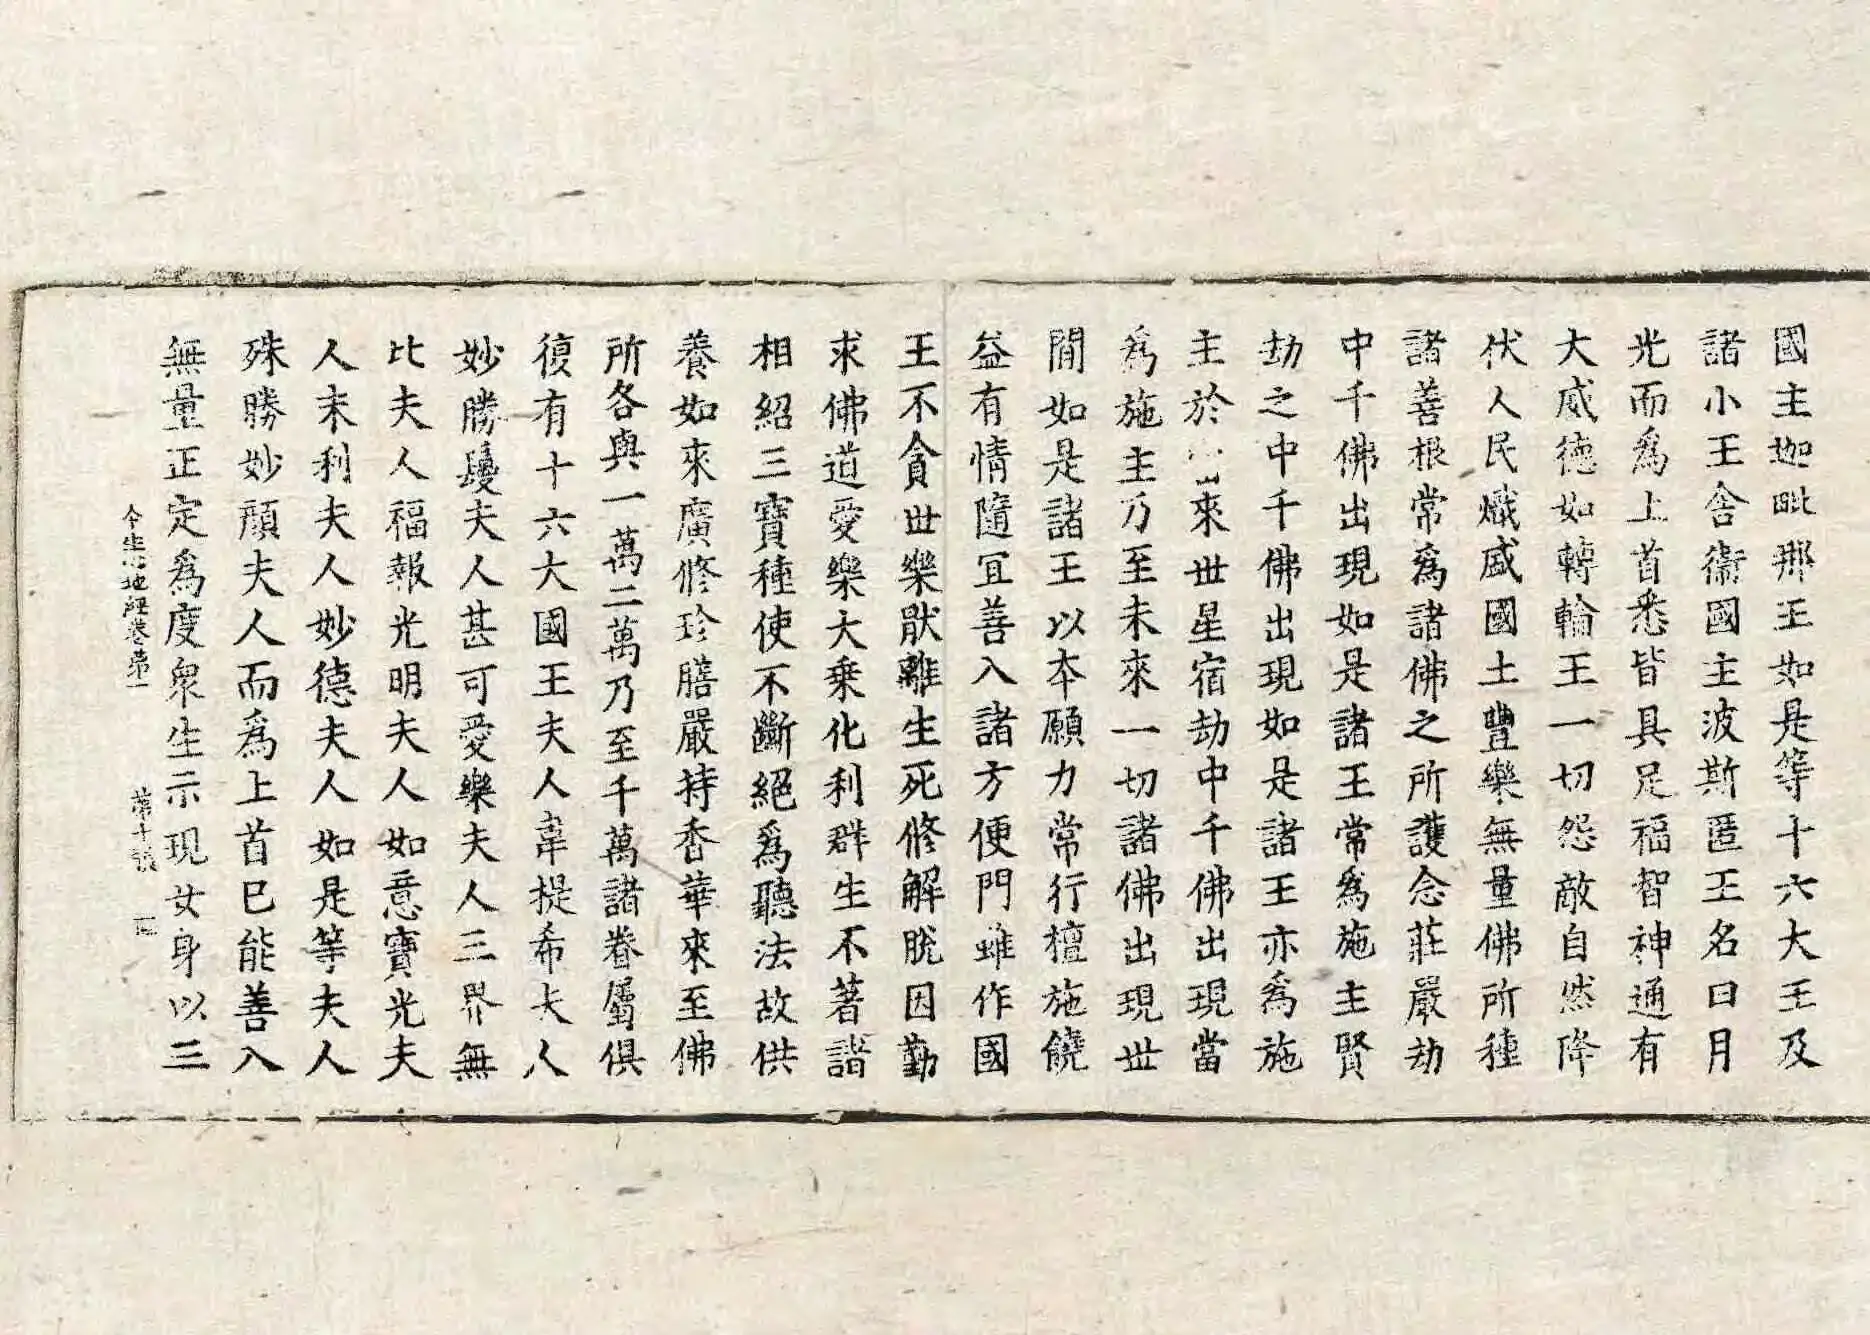 國主迦毗那王如是等十六大王及
諸小王舍衞國主波斯匿王名曰月
光而爲上首悉皆具足福智神通有
大威德如轉輪王一切怨敵自然降
伏人民熾盛國土豐樂無量佛所種
諸善根常爲諸佛之所護念莊嚴劫
中千佛出現如是諸王常爲施主賢
劫之中千佛出現如是諸王亦爲施
主於來世星宿劫中千佛出現當
爲施主乃至未來一切諸佛出現世
間如是諸王以本願力常行檀施饒
益有情隨冝善入諸方便門雖作國
王不貪世樂猒離生死修解脫因勤
求佛道愛樂大乗化利群生不著諸
相紹三寶種使不斷絕爲聽法故供
養如來廣修珍膳嚴持香華來至佛
所各與一萬二萬乃至千萬諸眷屬俱
復有十六大國王夫人韋提希夫人
妙勝鬘夫人甚可愛樂夫人三界無
比夫人福報光明夫人如意寶光夫
人末利夫人妙德夫人如是等夫人
殊勝妙顔夫人而爲上首已能善入
無量正定爲度衆生示現女身以三
生心地經卷第一 第十張